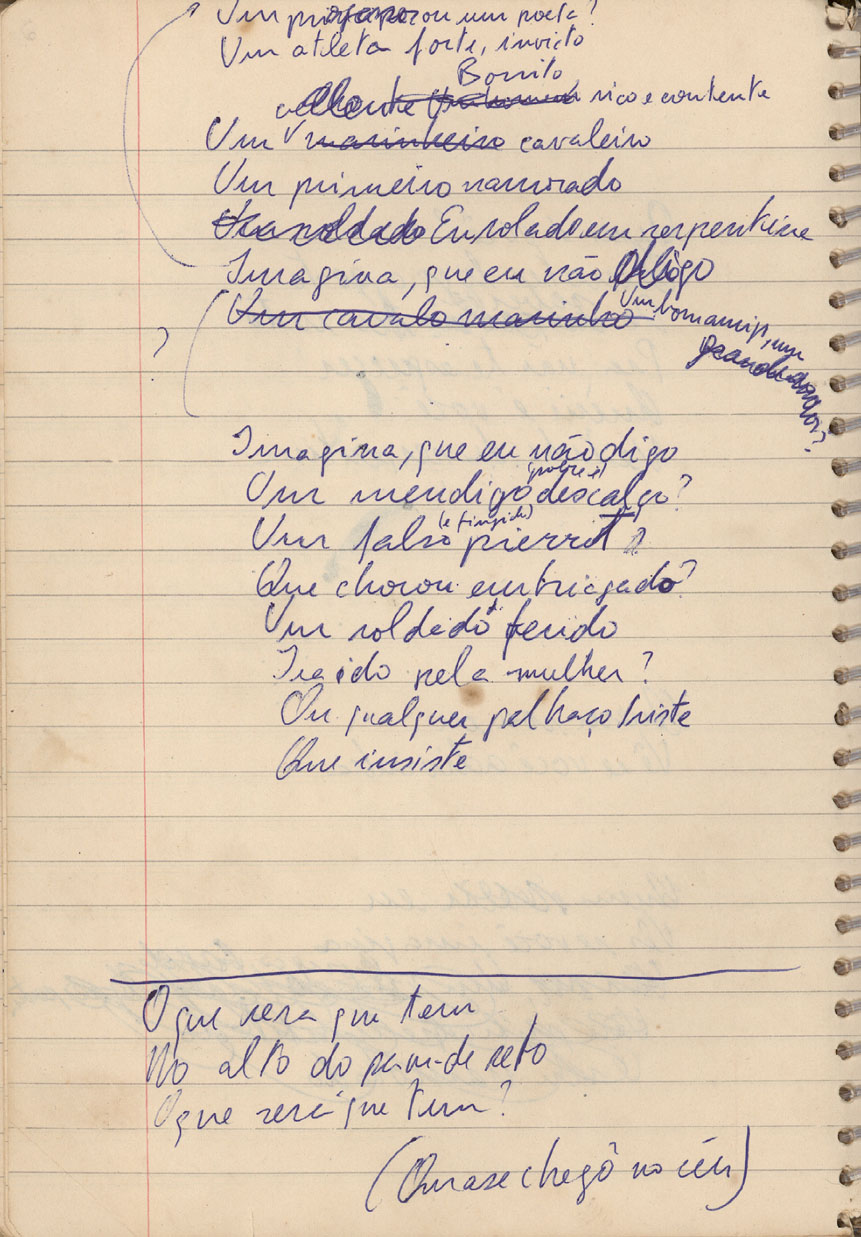 Um ou um poeta?
Um atleta forte, invicto
Bonito
valente rico e contente
Um marinheiro cavaleiro
Um primeiro namorado
Um soldado Enrolado em serpentina
Imagina, que eu não digo
Um cavalo marinho Um bom amigo, um
grande amigo?
?
Imagina, que eu não digo
(pobre e)
Um mendigo descalço?
(e fingido)
Um falso pierrot?
Que chorou embriagado?
Um soldado ferido
Traido pela mulher?
Ou qualquer palhaço triste
Que insiste
O que sera que tem
No alto do pau-de sebo
O que será que tem?
(Quase chegô no céu)